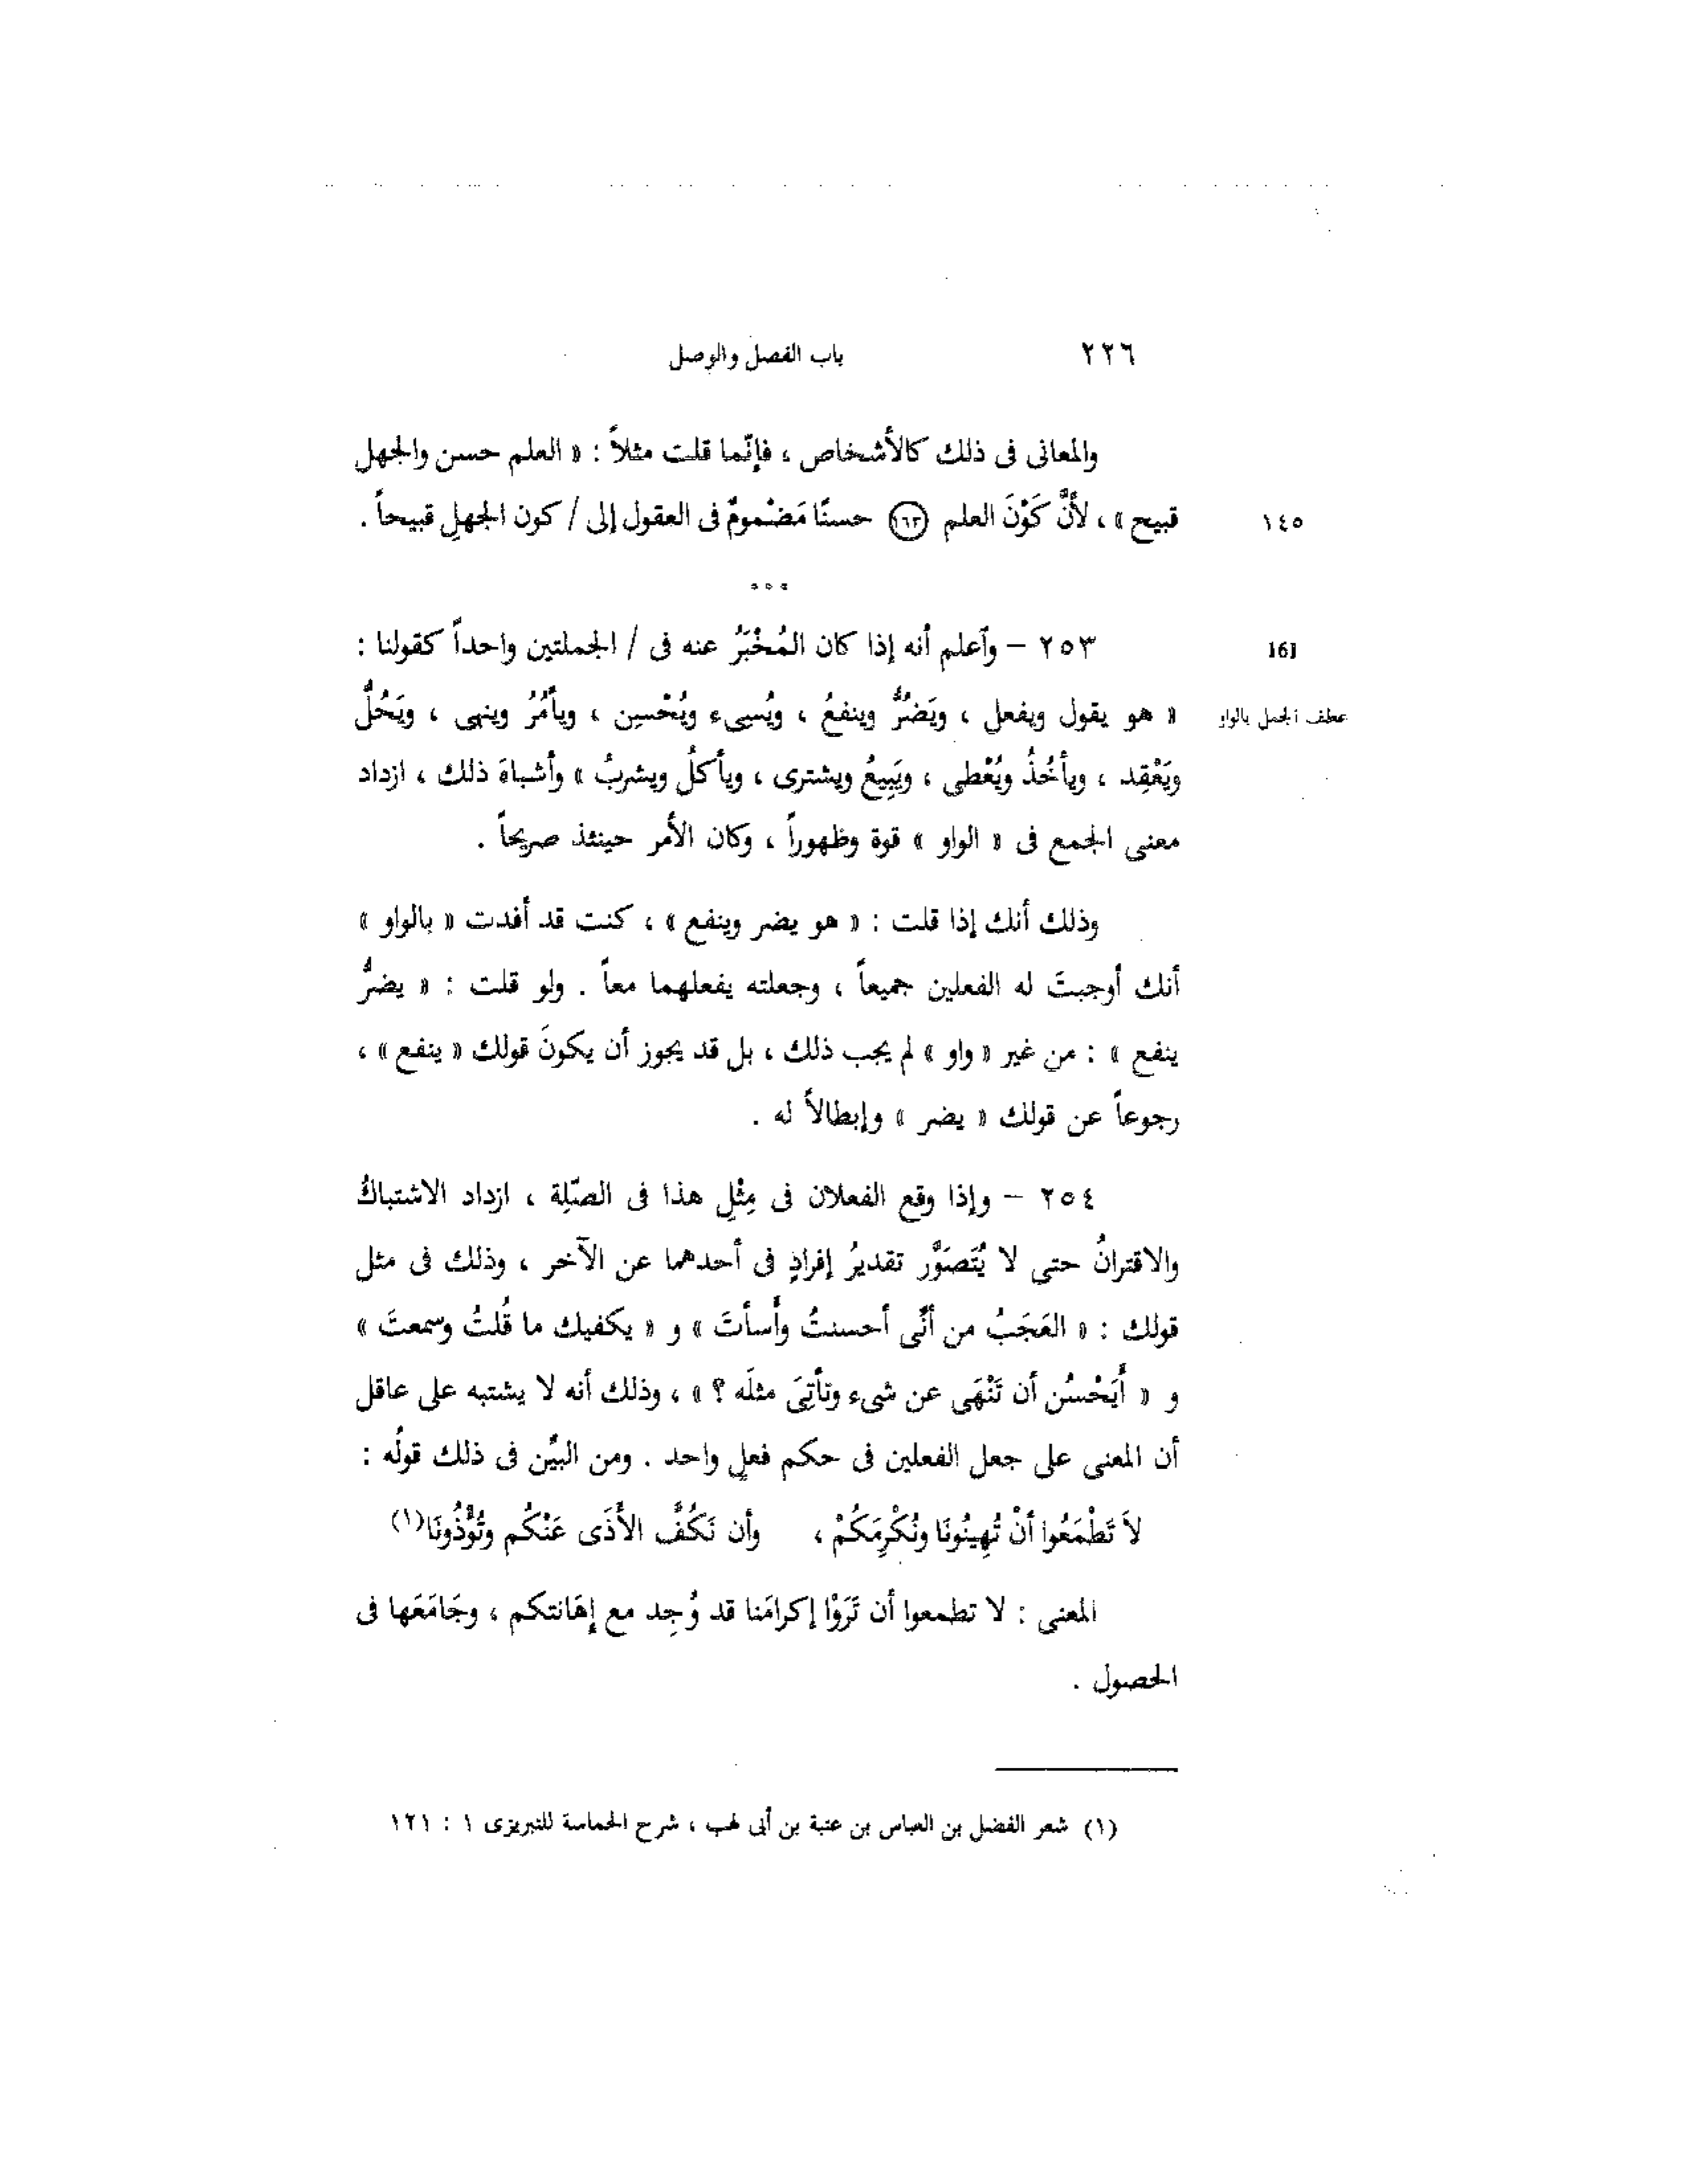 ٢٢٦ باب الفصل والوصل
والمعانى فى ذلك كالأشخاص ، فإنّما قلت مثلاً : « العلم حسن والجهل
١٤٥ قبيح » ، لأنَّ كَوْنَ العلم (١٦٣) حسنًا مَضْمومٌ فى العقول إلى / كون الجهلِ قبيحاً .
° ° °
161 ٢٥٣ – وآعلم أنه إذا كان المُخْبَرُ عنه فى / الجملتين واحداً كقولنا :
عطف الجمل بالواو « هو يقول ويفعل ، ويَضُرُّ وينفعُ ، ويُسىء ويُحْسِن ، ويأمُرُ وينهى ، ويَحُلُّ
ويَعْقِد ، ويأخُذُ ويُعْطى ، ويَبِيعُ ويشترى ، ويأكلُ ويشربُ » وأشباهَ ذلك ، ازداد
معنى الجمع فى « الواو » قوة وظهوراً ، وكان الأمر حينئذ صريحاً .
وذلك أنك إذا قلت : « هو يضر وينفع » ، كنت قد أفدت « بالواو »
أنك أوجبتَ له الفعلين جميعاً ، وجعلته يفعلهما معاً . ولو قلت : « يضرُّ
ينفع » : من غير « واو » لم يجب ذلك ، بل قد يجوز أن يكونَ قولك « ينفع » ،
رجوعاً عن قولك « يضر » وإبطالاً له .
٢٥٤ – وإذا وقع الفعلان فى مِثْلِ هذا فى الصِّلِة ، ازداد الاشتباكُ
والاقترانُ حتى لا يُتَصَوَّر تقديرُ إفرادٍ فى أحدهما عن الآخر ، وذلك فى مثل
قولك : « العَجَبُ من أنّى أحسنتُ وأسأتَ » و « يكفيك ما قُلتُ وسمعتَ »
و « أَيَحْسُن أن تَنْهَى عن شىء وتأتِىَ مثلَه ؟ » ، وذلك أنه لا يشتبه على عاقل
أن المعنى على جعل الفعلين فى حكم فعلٍ واحد . ومن البيِّن فى ذلك قولُه :
لاَ تَطْمَعُوا أنْ تُهِينُونَا ونُكْرِمَكُمْ ، وأن نَكُفَّ الأَذَى عَنْكُم وتُؤْذُونَا(١)
المعنى : لا تطمعوا أن تَرَوْا إكرامَنا قد وُجِد مع إهَانتكم ، وجَامَعَها فى
الحصول .
(١) شعر الفضل بن العباس بن عتبة بن أبى لهب ، شرح الحماسة للتبريزى ١ : ١٢١